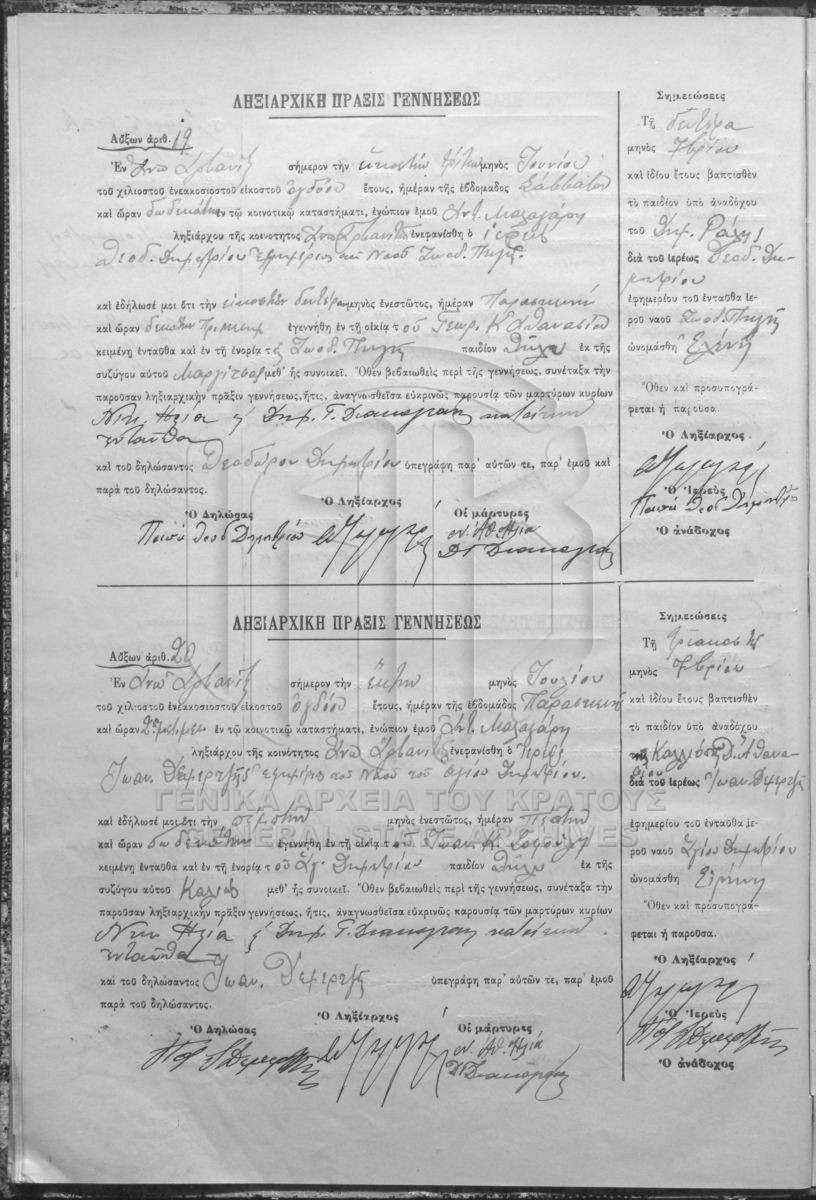 ΛΗΞΙΑΡΧΙΚΗ ΠΡΑΞΙΣ ΓΕΝΝΗΣΕΩΣ
Αὔξων ἀριθ. 19
Ἐν Ἄνω σήμερον τὴν εἰκοστὴν τρίτην μηνὸς Ἰουνίου
τοῦ χιλιοστοῦ ἐνεακοσιοστοῦ εἰκοστοῦ ὀγδόου ἔτους, ἡμέραν τῆς ἑβδομάδος Σάββατον
καὶ ὥραν δωδεκάτην ἐν τῷ κοινοτικῷ καταστήματι, ἐνώπιον ἐμοῦ Ἀντ.
ληξιάρχου τῆς κοινοτητος Ἄνω ἐνεφανίσθη ὁ ἱερεὺς
Θεοδ. Δημητρίου ἐφημέριος τοῦ Ναοῦ Ζωοδ. Πηγῆς.
καὶ ἐδήλωσέ μοι ὅτι τὴν εἰκοστὴν δευτέραν μηνὸς ἐνεστῶτος, ἡμέραν Παρασκευὴν
καὶ ὥραν δεκάτην ἐγεννήθη ἐν τῇ οἰκίᾳ τοῦ Γεωρ. Κ. Ἀθανασίου
κειμένη ἐνταῦθα καὶ ἐν τῇ ἐνορίᾳ τ Ζωοδ. Πηγῆς παιδίον θῆλυ ἐκ τῆς
συζύγου αὐτοῦ Μαργίτσας μεθ᾽ ἧς συνοικεῖ. Ὅθεν βεβαιωθεὶς περὶ τῆς γεννήσεως, συνέταξα τὴν
παροῦσαν ληξιαρχικὴν πρᾶξιν γεννήσεως, ἥτις, ἀναγνωσθεῖσα εὐκρινῶς παρουσίᾳ τῶν μαρτύρων κυρίων
Νικ. Ἠλία ἢ Δημ. Γ. κατοίκων
ἐνταῦθα
καὶ τοῦ δηλώσαντος Θεοδώρου Δημητρίου ὑπεγράφη παρ᾽ αὐτῶν τε, παρ᾽ ἐμοῦ καὶ
παρὰ τοῦ δηλώσαντος.
Ὁ Δηλώσας Ὁ Ληξίαρχος Οἱ μάρτυρες
Παπᾶ Θεοδ Δημητρίου
Σημειώσεις
Τῇ δευτέρᾳ
μηνὸς
καὶ ἰδίου ἔτους βαπτισθὲν
τὸ παιδίον ὑπὸ ἀναδόχου
τοῦ Δημ. Ράλη
διὰ τοῦ ἱερέως Θεοδ. Δη-
μητρίου
ἐφημερίου τοῦ ἐνταῦθα ἱε-
ροῦ ναοῦ Ζωοδ. Πηγῆς
ὠνομάσθη Ἑλένη
Ὅθεν καὶ προσυπογρά-
φεται ἡ παροῦσα.
Ὁ Ληξίαρχος
Ὁ Ἱερεὺς
Παπᾶ Θεοδ Δημητρίου
Ὁ ἀνάδοχος
ΛΗΞΙΑΡΧΙΚΗ ΠΡΑΞΙΣ ΓΕΝΝΗΣΕΩΣ
Αὔξων ἀριθ. 20
Ἐν Ἄνω σήμερον τὴν ἕκτην μηνὸς Ἰουλίου
τοῦ χιλιοστοῦ ἐνεακοσιοστοῦ εἰκοστοῦ ὀγδόου ἔτους, ἡμέραν τῆς ἑβδομάδος Παρασκευὴν
καὶ ὥραν ἐν τῷ κοινοτικῷ καταστήματι, ἐνώπιον ἐμοῦ Ἀντ.
ληξιάρχου τῆς κοινότητος Ἄνω ἐνεφανίσθη ὁ ἱερεὺς
Ἰωαν. Δεμερτζῆς ἐφημέριος τοῦ Ναοῦ τοῦ Ἁγίου Δημητρίου.
ΓΕΝΙΚΑ ΑΡΧΕΙΑ ΤΟΥ ΚΡΑΤΟΥΣ
GENERAL STATE ARCHIVES
καὶ ἐδήλωσέ μοι ὅτι τὴν πέμπτην μηνὸς ἐνεστῶτος, ἡμέραν Πέμπτην
καὶ ὥραν δωδεκάτην ἐγεννήθη ἐν τῇ οἰκίᾳ τοῦ Ἰωαν. Κ.
κειμένη ἐνταῦθα καὶ ἐν τῇ ἐνορίᾳ τοῦ Ἁγ. Δημητρίου παιδίον θῆλυ ἐκ τῆς
συζύγου αὐτοῦ μεθ᾽ ἧς συνοικεῖ. Ὅθεν βεβαιωθεὶς περὶ τῆς γεννήσεως, συνέταξα τὴν
παροῦσαν ληξιαρχικὴν πρᾶξιν γεννήσεως, ἥτις, ἀναγνωσθεῖσα εὐκρινῶς καρουσία τῶν μαρτύρων κυρίων
Νικ Ἠλία ἢ Δημ. Γ. κατοίκων
ἐνταῦθα
καὶ τοῦ δηλώσαντος Ἰωαν. Δεμερτζῆ ὑπεγράφη παρ᾽ αὐτῶν τε, παρ᾽ ἐμοῦ
παρὰ τοῦ δηλώσαντος.
Ὁ Δηλώσας Ὁ Ληξίαρχος Οἱ μάρτυρες
Σημειώσεις
Τῇ τριακοστῇ
μηνὸς
καὶ ἰδίου ἔτους βαπτισθὲν
τὸ παιδίον ὑπὸ ἀναδόχου
Δ. Ἀθανα-
σίου
διὰ τοῦ ἱερέως Ἰωαν. Δεμερτζῆ
ἐφημερίου τοῦ ἐνταῦθα ἱε-
ροῦ ναοῦ Ἁγίου Δημητρίου
ὠνομάσθη Εἰρήνη
Ὅθεν καὶ προσυπογρά-
φεται ἡ παροῦσα.
Ὁ Ληξίαρχος
Ὁ Ἱερεὺς
Ὁ ἀνάδοχος